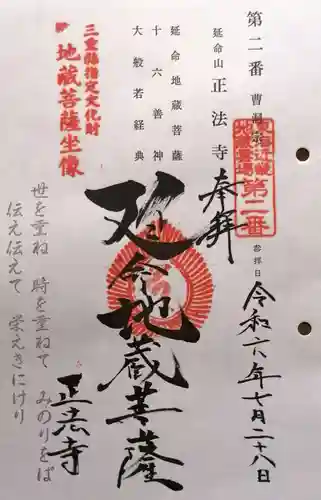 第二番 曹洞宗
延命山 正法寺
延命地蔵菩薩
十六善神
大般若経典
三重県指定文化財
地蔵菩薩坐像
東海近畿
地蔵霊場
第二番
奉拝
参拝日
令和六年七月二十八日
延命地蔵菩薩
正法寺
世を重ね 時を重ねて みのりをば
伝え伝えて 栄えきにけり